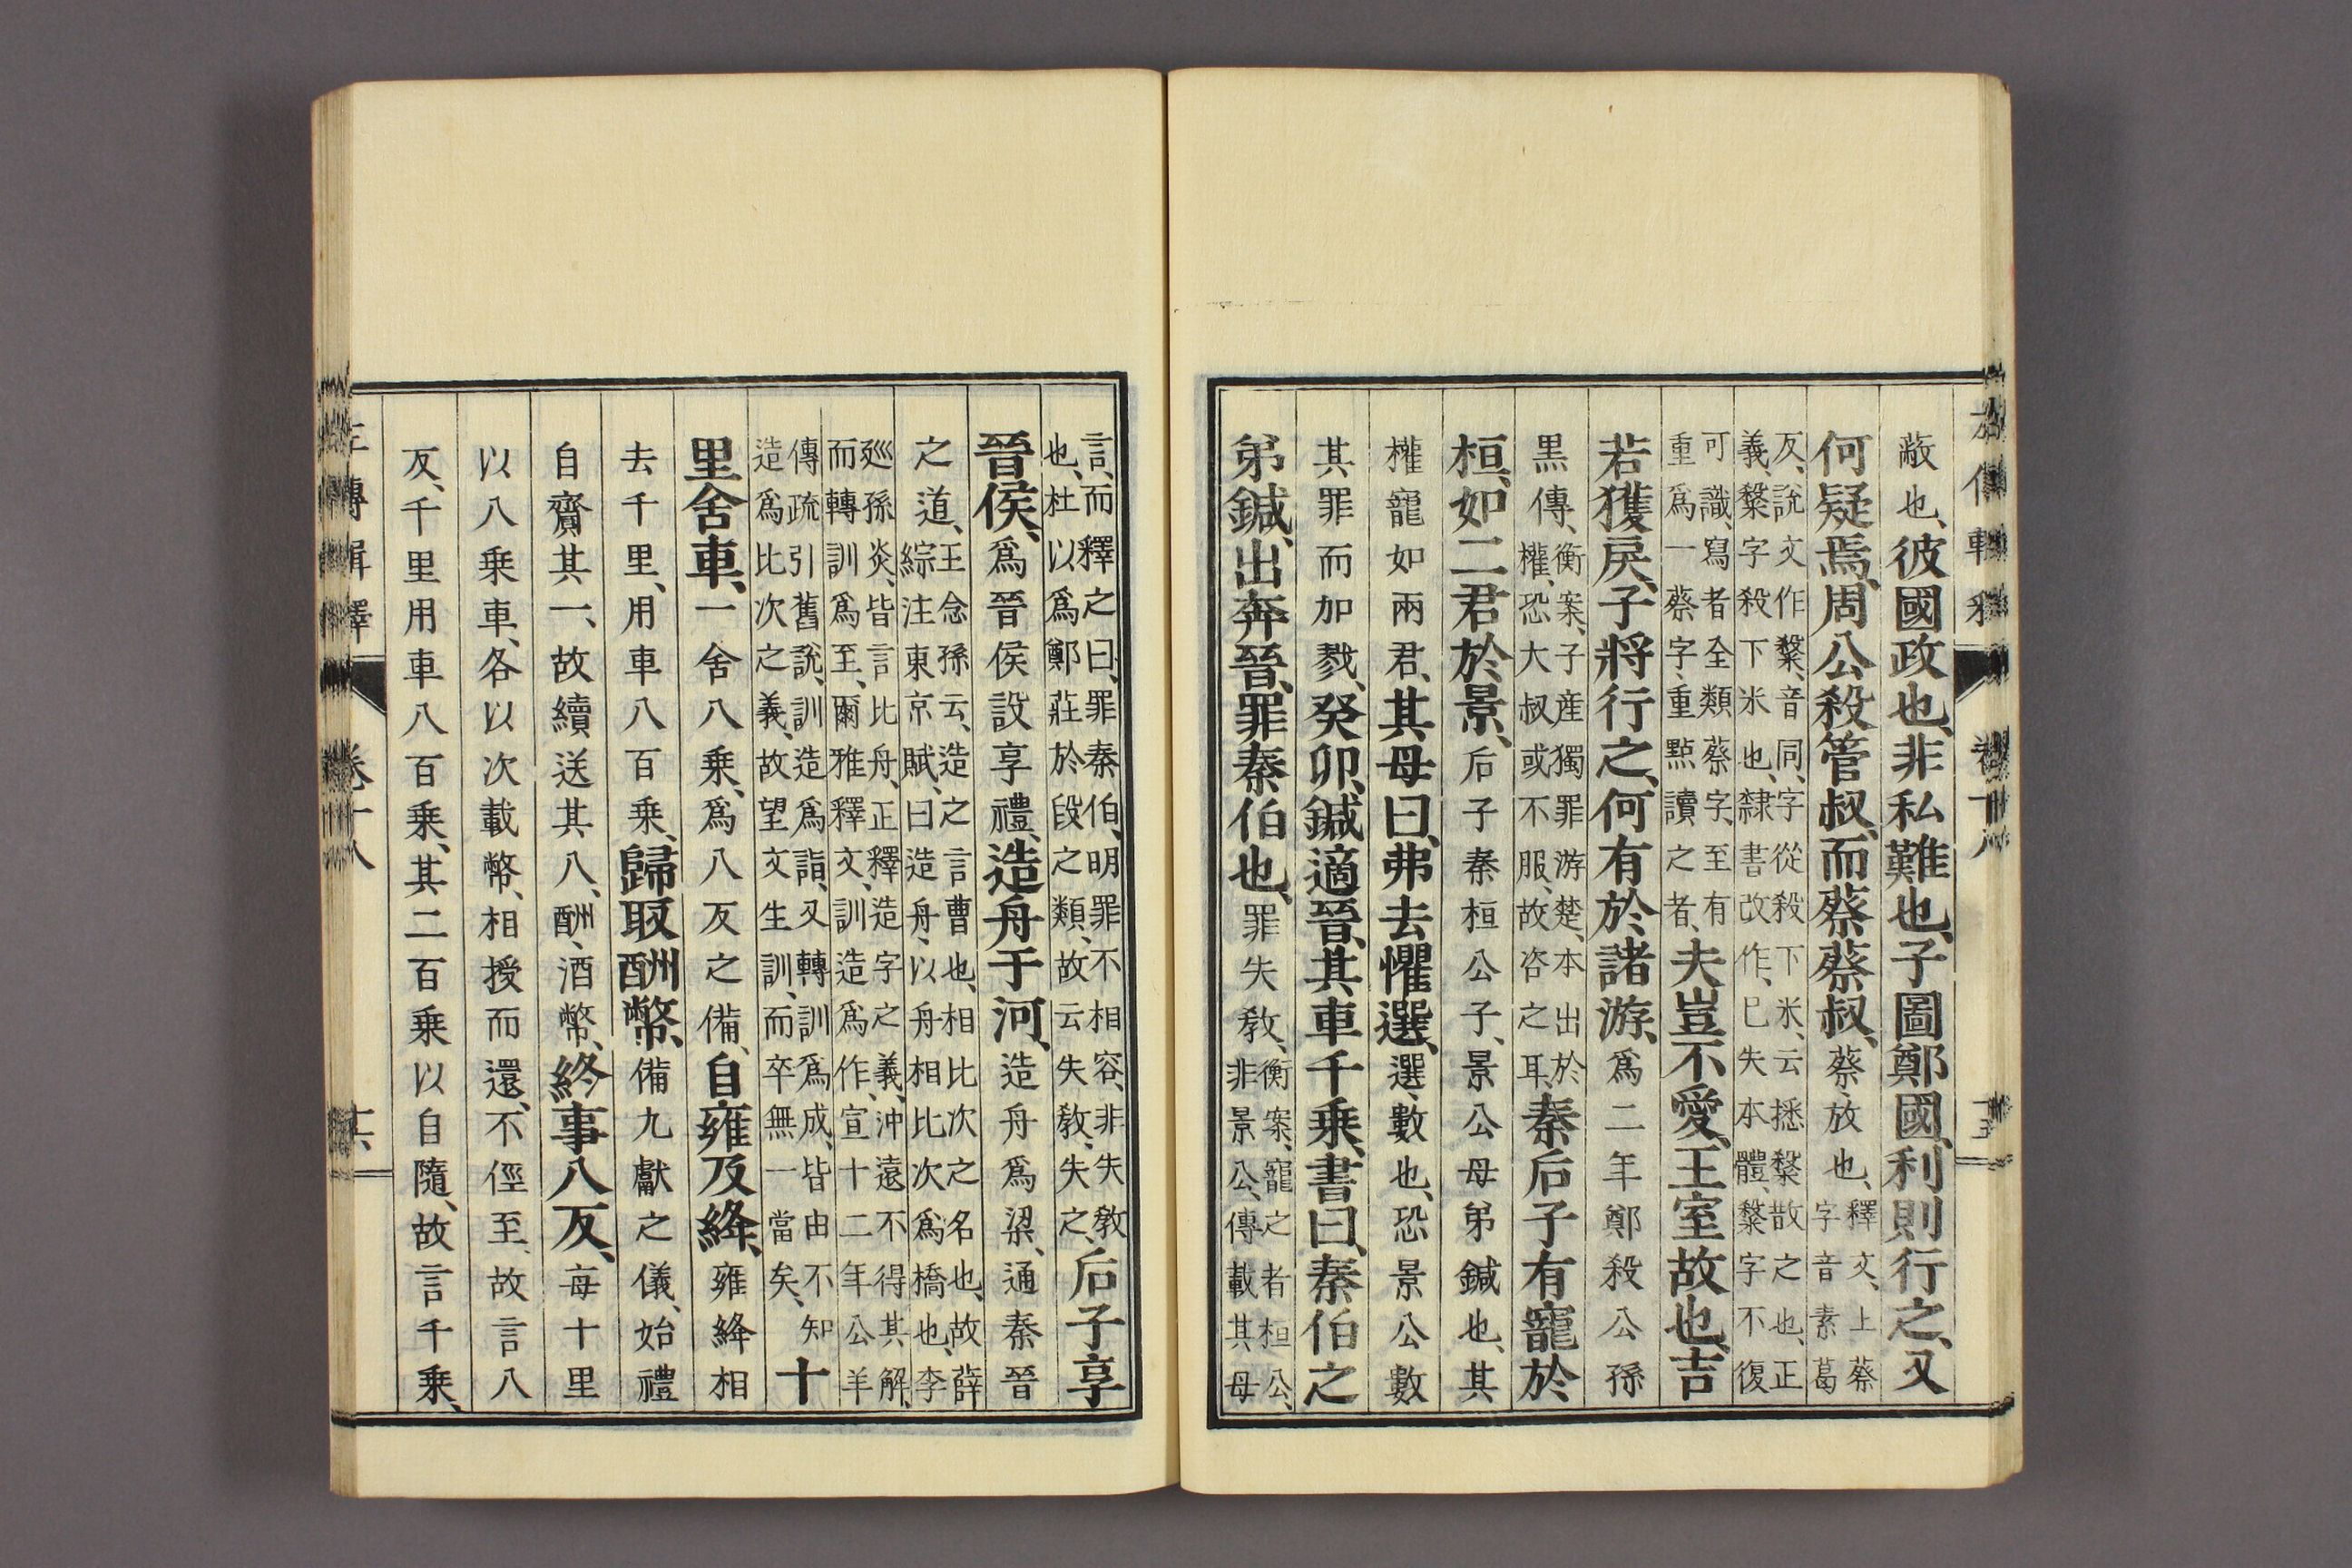 蔽也、彼國政也、非私難也、子圖鄭國、利則行之、又
何疑焉、周公殺管叔、而蔡蔡叔、蔡、放也、釋文、上蔡
字音素葛
反、說文作𥻦、音同、字從殺下米、云𢠵𥻦散之也、正
義、𥻦字殺下米也、隸書改作、已失本體、𥻦字不復
可識、寫者全類蔡字、至有
重爲一蔡字、重點讀之者、夫豈不愛、王室故也、吉
若獲戾、子將行之、何有於諸游、爲二年鄭殺公孫
黑傳、衡案、子産獨罪游楚、本出於
權、恐大叔或不服、故咨之耳、秦后子有寵於
桓、如二君於景、后子秦桓公子、景公母弟鍼也、其
權寵如兩君、其母曰、弗去懼選、選、數也、恐景公數
其罪而加戮、癸卯、鍼適晉、其車千乘、書曰、秦伯之
弟鍼、出奔晉、罪秦伯也、罪失敎、衡案、寵之者桓公、
非景公、傳載其母
言、而釋之曰、罪秦伯、明罪不相容、非失敎
也、杜以爲鄭莊於段之類、故云失敎、失之、后子享
晉侯、爲晉侯設享禮、造舟于河、造舟爲梁、通秦晉
之道、王念孫云、造之言曹也、相比次之名也、故薛
綜注東京賦、曰造舟、以舟相比次爲橋也、李
廵孫炎、皆言比舟、正釋造字之義、沖遠不得其解、
而轉訓爲至、爾雅釋文、訓造爲作、宣十二年公羊
傳疏引舊說、訓造爲詣、又轉訓爲成、皆由不知
造爲比次之義、故望文生訓、而卒無一當矣、十
里舍車、一舍八乘、爲八反之備、自雍及絳、雍絳相
去千里、用車八百乘、歸取酬幣、備九獻之儀、始禮
自齎其一、故續送其八、酬、酒幣、終事八反、每十里
以八乘車、各以次載幣、相授而還、不徑至、故言八
反、千里用車八百乘、其二百乘以自隨、故言千乘、
左傳輯釋 卷十八